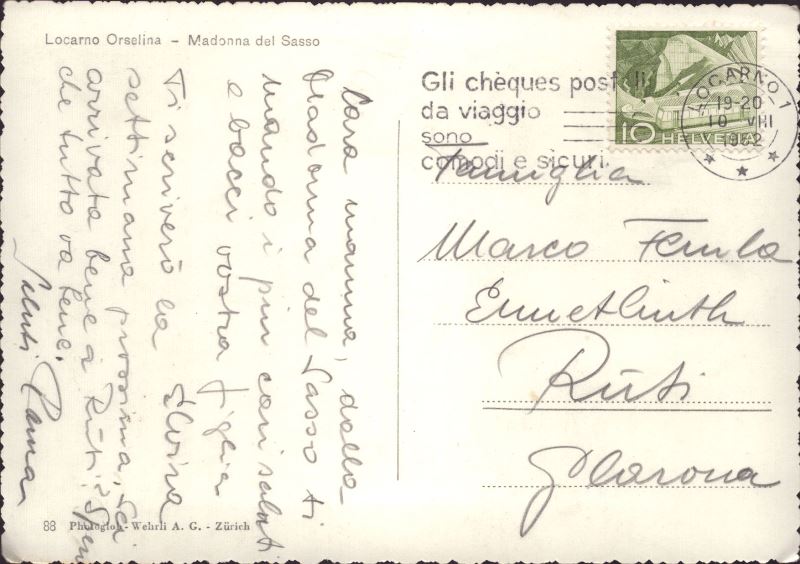 Locarno Orselina - Madonna del Sasso
Cara mamma, dalla
Madonna del Sasso ti
mando i piu cari saluti
e bacci vostra figlia
Elvira
Ti scriverò la
settimana prossima, sei
arrivata bene a Rüti? Spero
che tutto va bene.
Saluti
88 Photoglob-Wehrli A. G. - Zürich
Gli chèques postali
da viaggio
sono
comodi e sicuri.
LOCARNO 1
19-20
10 VIII
1952
10 HELVETIA
Famiglia
Marco
Ennetlinth
Rüti
Glarona